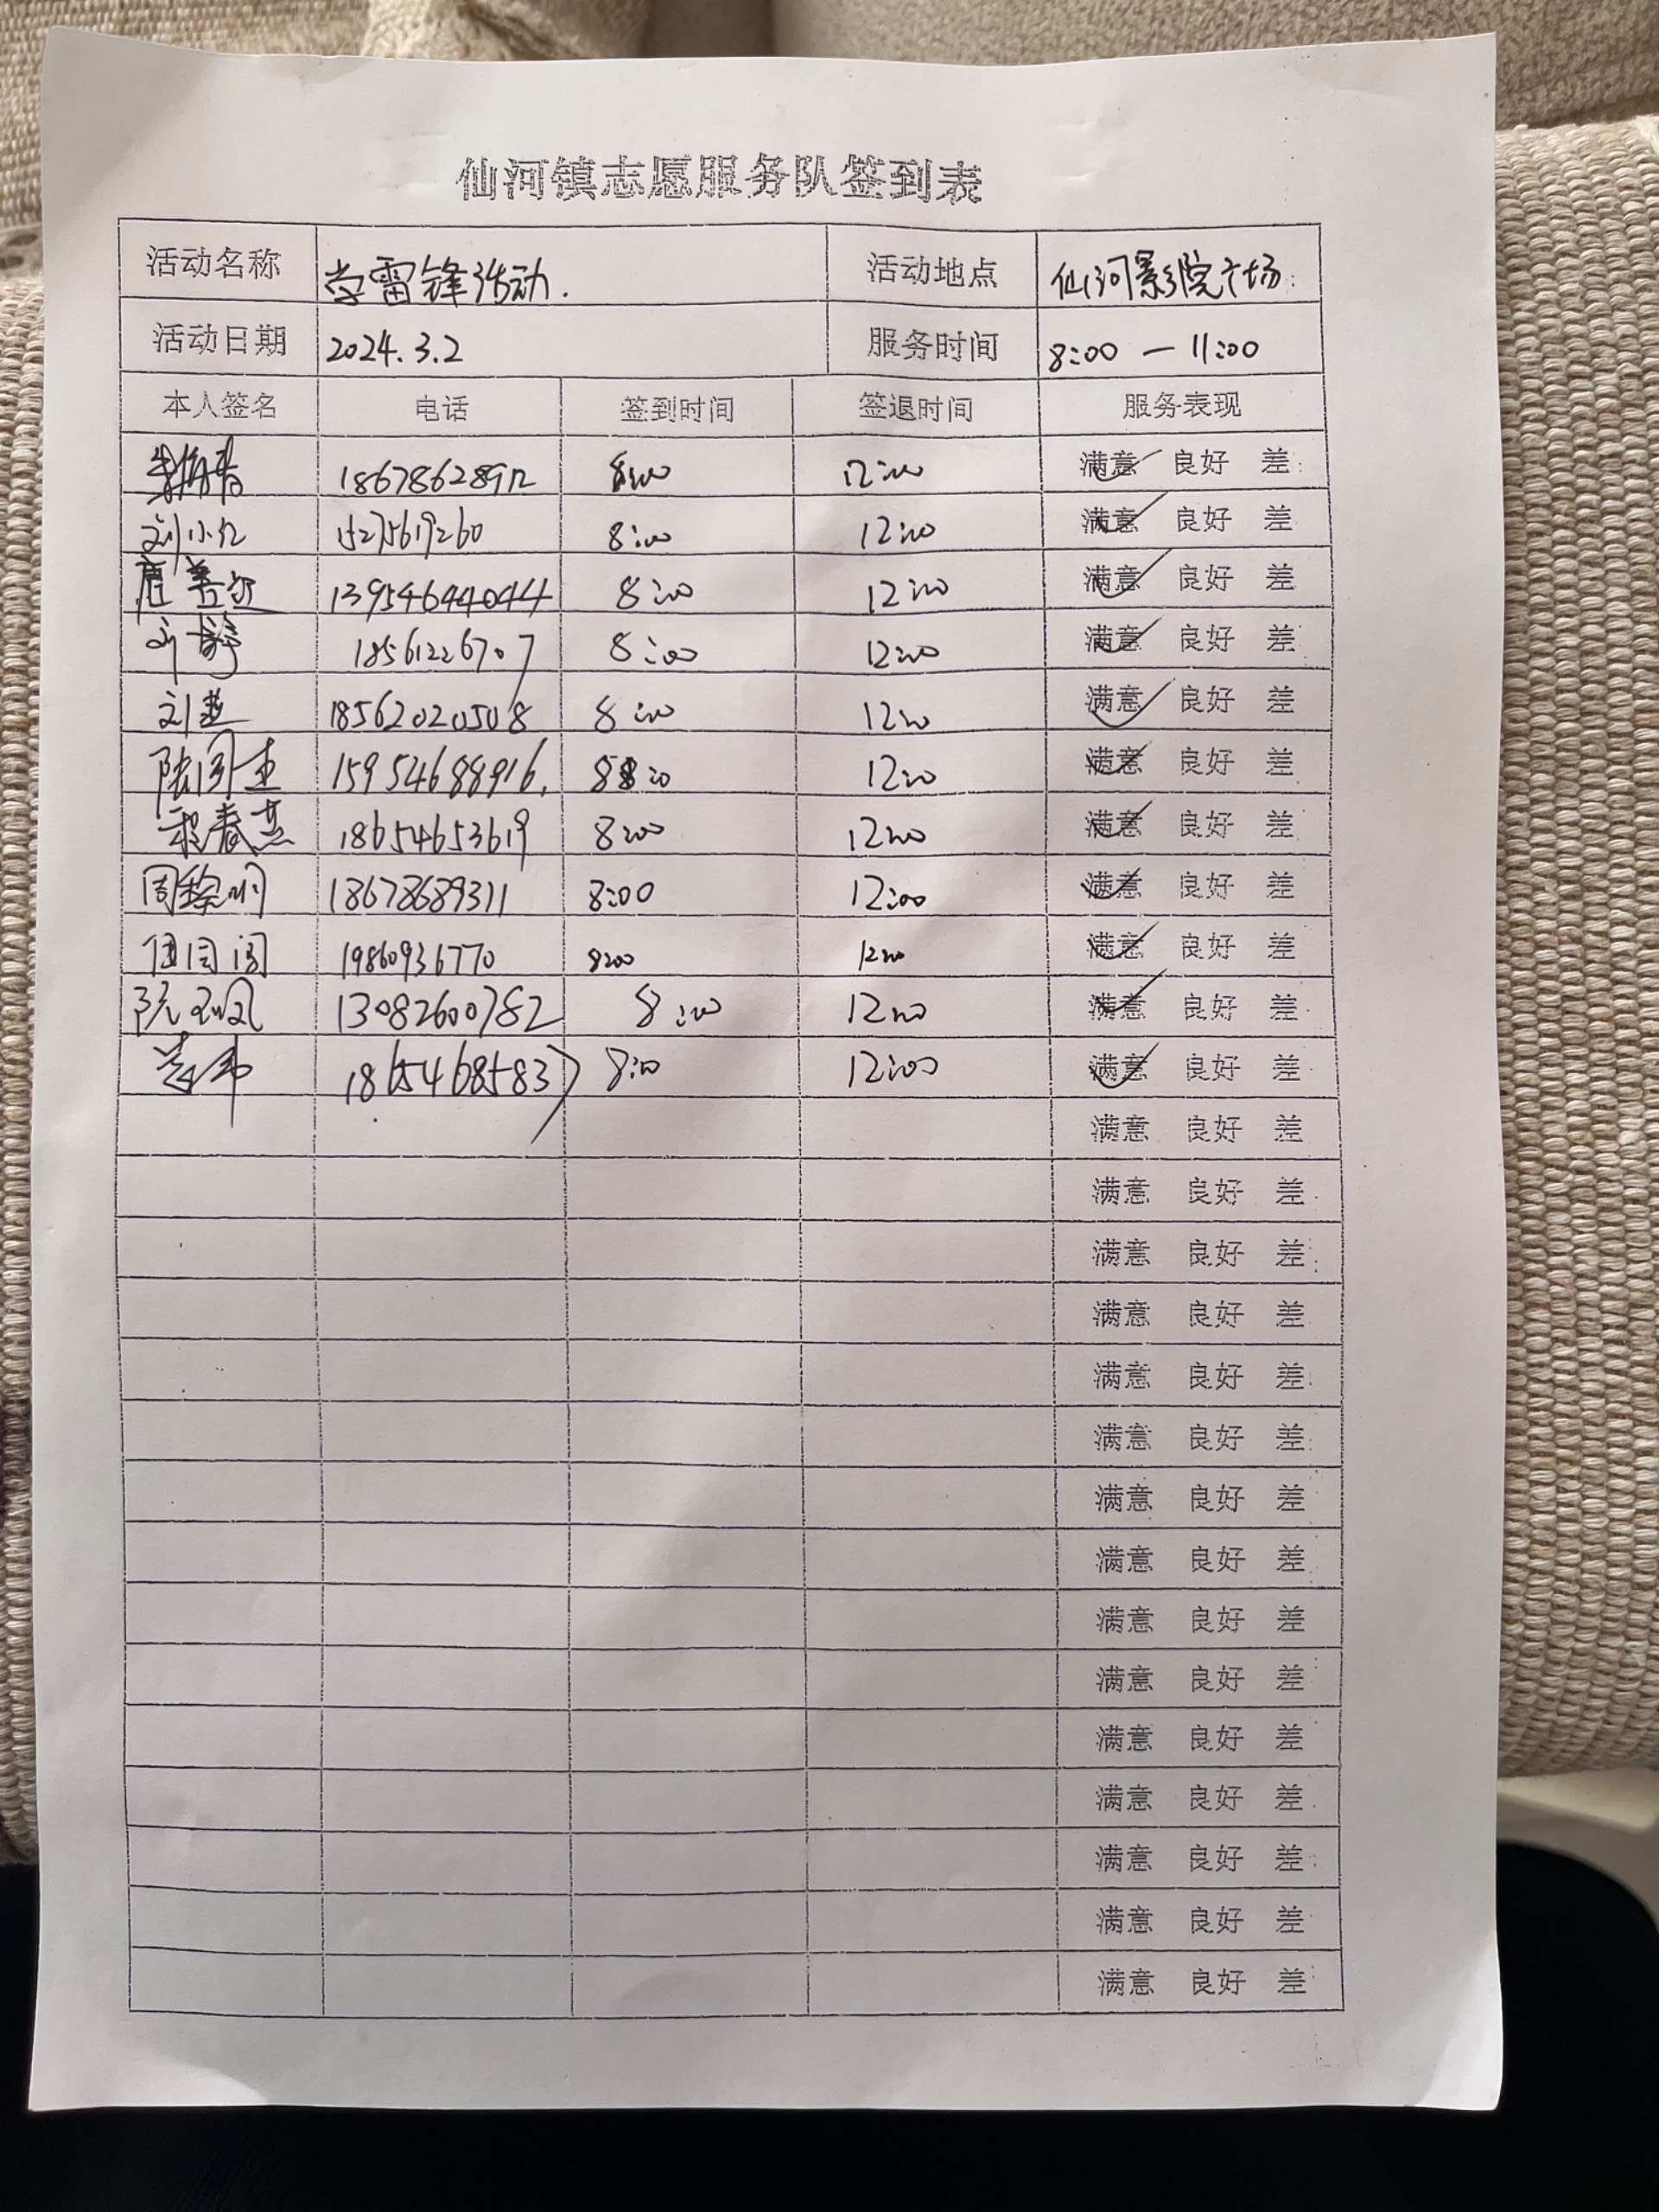 仙河镇志愿服务队签到表
活动名称 学雷锋活动. 活动地点 仙河影院广场
活动日期 2024.3.2 服务时间 8:00 — 11:00
本人签名 电话 签到时间 签退时间 服务表现
8:00 12:00 满意 良好 差
刘小红 15275619260 8:00 12:00 满意 良好 差
13954644044 8:00 12:00 满意 良好 差
刘静 18561226707 8:00 12:00 满意 良好 差
刘燕 18562020508 8:00 12:00 满意 良好 差
15954688916. 12:00 满意 良好 差
程春燕 18654653619 8:00 12:00 满意 良好 差
周黎明 18678689311 8:00 12:00 满意 良好 差
19860936770 8:00 12:00 满意 良好 差
13082600782 8:00 12:00 满意 良好 差
18654685837 8:00 12:00 满意 良好 差
满意 良好 差
满意 良好 差
满意 良好 差
满意 良好 差
满意 良好 差
满意 良好 差
满意 良好 差
满意 良好 差
满意 良好 差
满意 良好 差
满意 良好 差
满意 良好 差
满意 良好 差
满意 良好 差
满意 良好 差